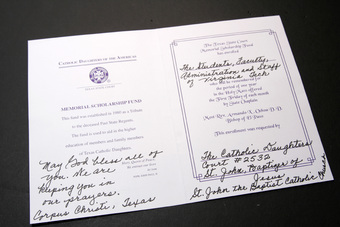 CATHOLIC DAUGHTERS OF THE AMERICAS
MEMORIAL SCHOLARSHIP FUND
This fund was established in 1980 as a tribute
to the deceased Past State Regents.
The fund is used to aid in the higher
education of members and family members
of Texas Catholic Daughters.
May God bless all of
you. We are
keeping you in
our prayers.
Corpus Christi, Texas
The Texas State Court
Memorial Scholarship Fund
has enrolled
The Students, Faculty,
Administration and Staff
of Virginia Tech
who will be remembered
for the period of one year
in the Holy Mass offered
the First Friday of each month
by State Chaplain
Most Rev. Armando X. Ochoa D.D.
Bishop of El Paso
This enrollment was requested by
The Catholic Daughters
Court #2532
St. John, Baptizer of
Jesus
St. John the Baptist Catholic Church